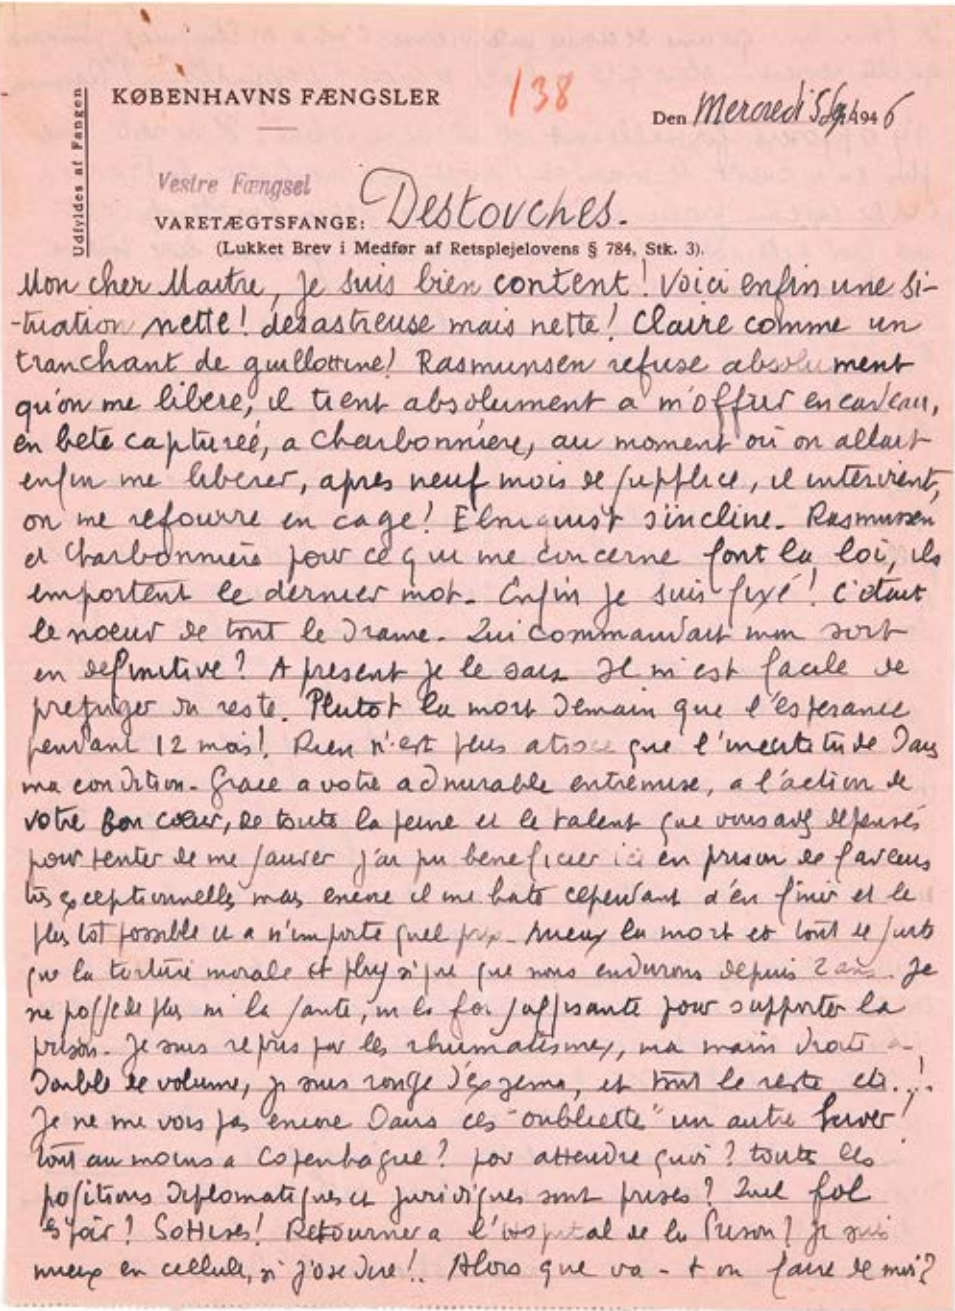 KØBENHAVNS FÆNGSLER
138
Den Mercredi 1946
Udfyldes af Fangen
Vestre Fængsel
VARETÆGTSFANGE: Destouches.
(Lukket Brev i Medfør af Retsplejelovens § 784, Stk. 3).
Mon cher Maitre, Je suis bien content ! Voici enfin une si-
-tuation nette ! desastreuse mais nette ! Claire comme un
tranchant de guillottine ! Rasmunsen refuse absolument
qu'on me libere, il tient absolument a m'offrir en cadeau,
en bete capturée, a Charbonniere, au moment où on allait
enfin me liberer, apres neuf mois de supplice, il intervient,
on me refourre en cage ! Elmquist s'incline - Rasmussen
et Charbonniere pour ce qui me concerne font la loi, ils
emportent le dernier mot - Enfin je suis fixé ! C'etait
le noeud de tout le Drame - Qui commandait mon sort
en definitive ? A present je le sais Il m'est facile de
prejuger du reste. Plutot la mort Demain que l'esperance
pendant 12 mois ! Rien n'est plus atroce que l'incertitude Dans
ma condition - Grace a votre admirable entremise, a l'action de
votre Bon coeur, de toute la peine et le talent que vous avez depensés
pour tenter de me sauver j'ai pu beneficier ici en prison de faveurs
tres exceptionnelles mais encore il me hate cependant d'en finir et le
plus tot possible et a n'importe quel prix - Mieux la mort et tout de suite
que la torture morale et physique que nous endurons depuis 2 ans. Je
ne possede plus ni la sante, ni la foi suffisante pour supporter la
prison - Je suis repris par les rhumatismes, ma main droite a
Double de volume, je suis rongé d'eczema, et tout le reste, etc...!
Je ne me vois pas encore Dans ces "oubliette" un autre hiver !
tout au moins a Copenhague ? por attendre quoi ? toutes les
positions Diplomatiques et juridiques sont prises ? Quel fol
espoir ? Sottises ! Retourner a l'Hospital de la Prison ? Je suis
mieux en cellule, si j'ose Dire !.. Alors que va - t on faire de moi ?